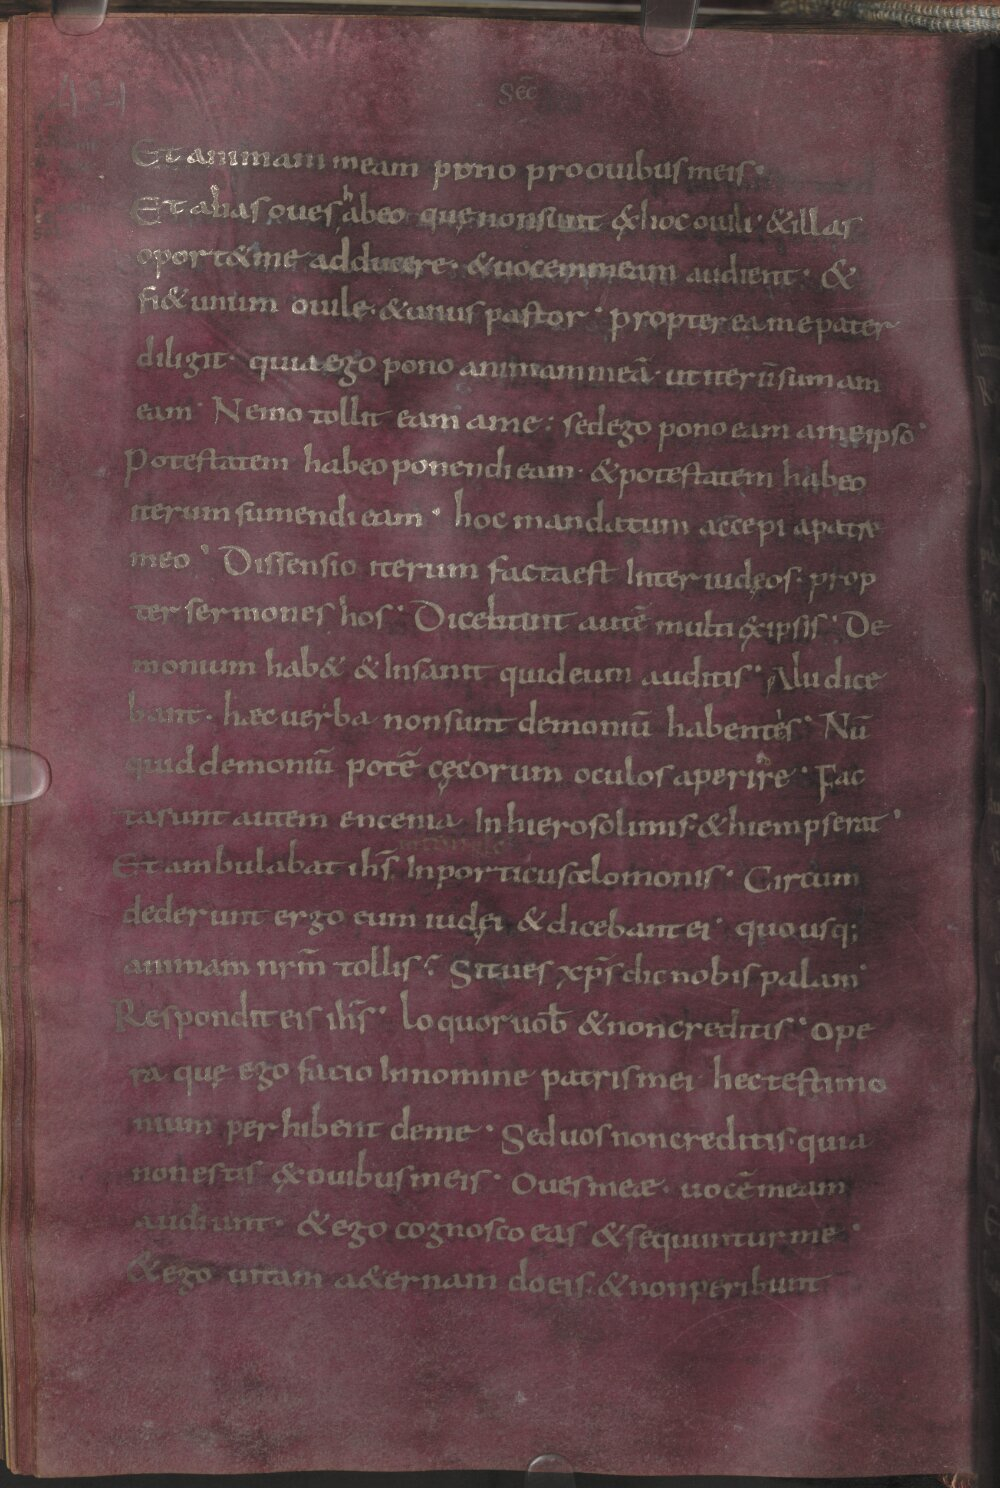 Sec̄
Et animam meam pono pro ouibus meis·
Et alias oues habeo quę non sunt &hoc ouili· &illas
oport&me adducere· &uocem meam audient· &
fi&unum ouile·&unus pastor· propterea me pater
diligit· quia ego pono animam meā· ut iterū sumam
eam· Nemo tollit eam a me: sed ego pono eam a me ipso·
Potestatem habeo ponendi eam· &potestatem habeo
iterum sumendi eam· hoc mandatum accepi a patre
meo· Dissensio iterum facta est Inter iudęos: prop
ter sermones hos· Dicebant autē multi ex ipsis· De
monium hab& &Insanit quid eum auditis· Alii dice
bant· haec uerba non sunt demoniū habentes· Nū
quid demoniū potē cęcorum oculos aperire· Fac
ta sunt autem encenia In hierosolimis·&hiemps erat·
Et ambulabat ihs̄ In porticu salomonis· Circum
dederunt ergo eum iudęi &dicebant ei· quousq;
animam nrm̄ tollis: Si tu es xp̄s dic nobis palam·
Respondit eis ihs̄· loquor uob̄ &non creditis· Ope
ra quę ego facio In nomine patris mei hec testimo
nium perhibent de me· Sed uos non creditis·quia
non estis ex ouibus meis· Oues meae· uocē meam
audiunt· &ego cognosco eas &sequuntur me·
&ego uitam a&ernam do eis·&non peribunt